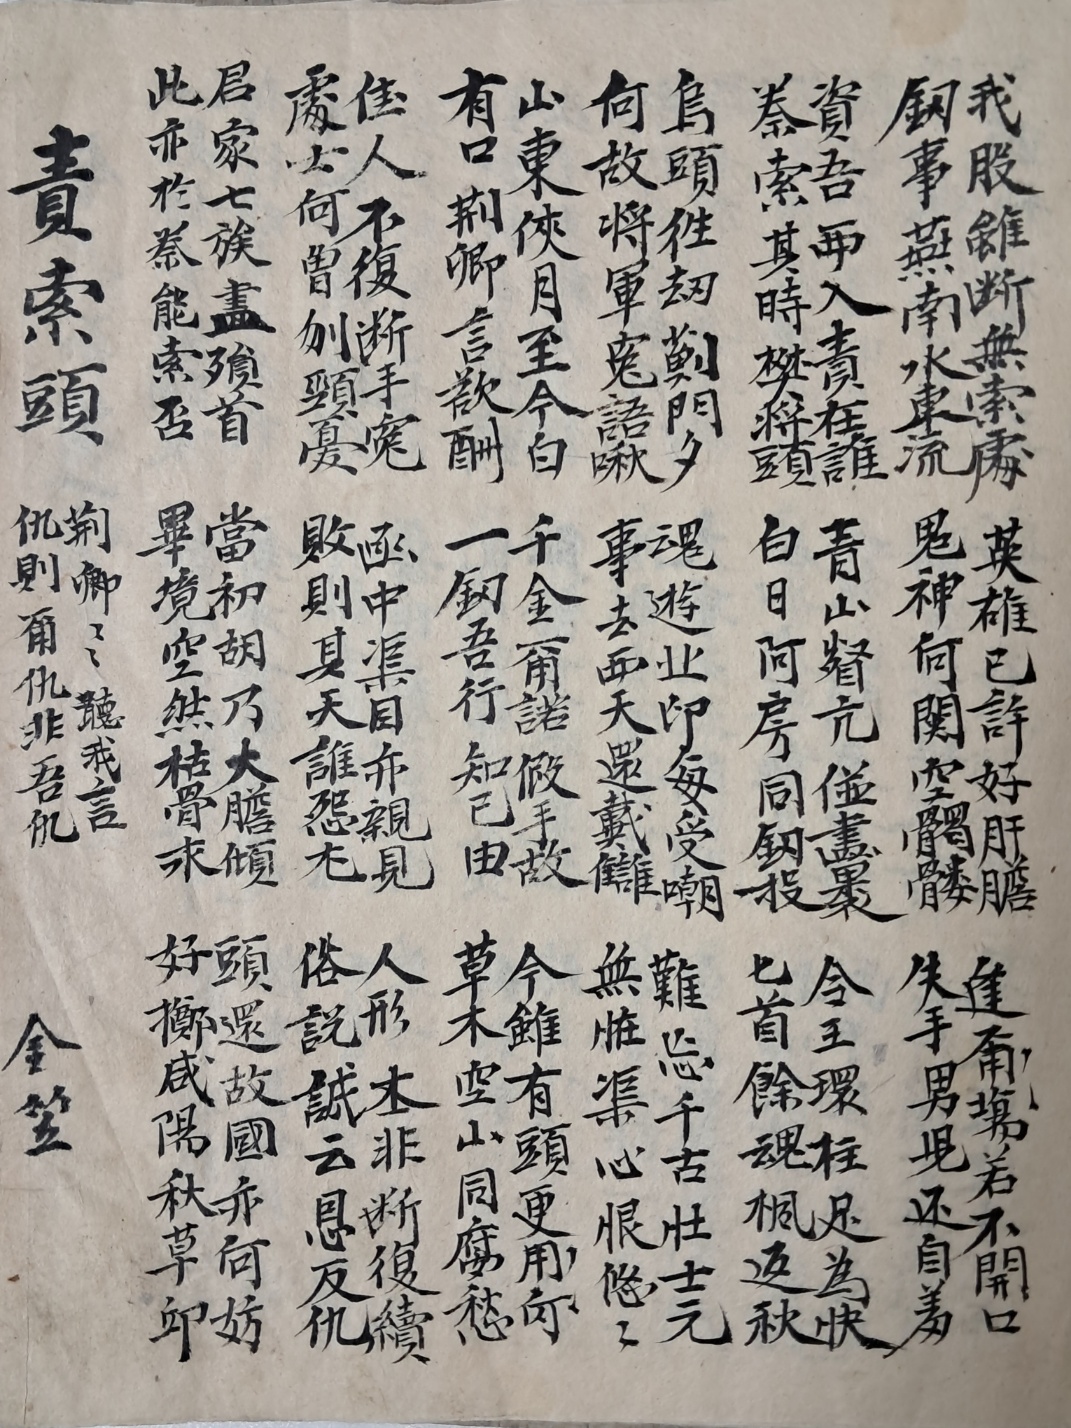 我股雖断無索處
釼事燕南水東流
英雄已許好肝膽
鬼神何関空髑髏
進爾塲若不開口
失手男児还自羞
資吾再入責在誰
柰索其時樊将頭
青山督亢倂盡裹
白日阿房同釼投
令王環柱足為快
匕首餘魂楓返秋
烏頭徃劫薊門夕
何故将軍寃語啾
魂遊北印每受嘲
事去西天還戴讎
難忘千古壯士元
無怪渠心恨悠〻
山東俠月至今白
有口荊卿言欲酬
千金爾諾假手故
一釼吾行知已由
今雖有頭更用何
草木空山同腐愁
佳人不復断手寃
處士何曽刎頸憂
函中渠目亦親見
敗則其天誰怨尤
人形本非断復續
俗説誠云恩反仇
君家七族盡殞首
此亦於柰能索否
當初胡乃大膽傾
畢境空然枯骨求
頭還故國亦何妨
好擲咸陽秋草邱
責索頭
荊卿〻〻聽我言
仇則爾仇非吾仇
金笠